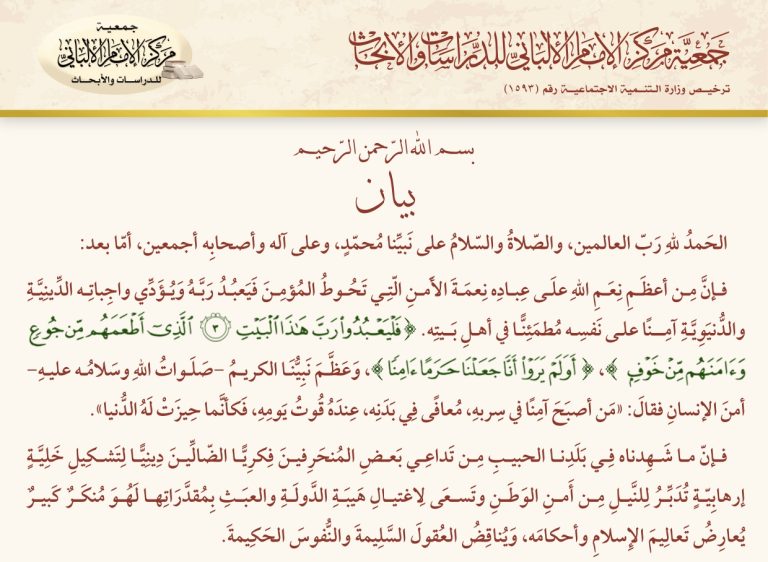 جمعية
مركز الإمام الألباني
للدراسات والأبحاث
جَمعيَّة مَركز الإمام الألباني للدِّراسَات والأبحَاث
ترخيـص وزارة الـتـنـمـيـة الاجتماعيـة رقم (١٥٩٣)
بسـم الله الرّحمن الرّحيـم
بيان
الحَمدُ للهِ رَبّ العالمين، والصَّلاةُ والسَّلامُ على نَبِيِّنا مُحمّدٍ، وعلى آله وأصحابِه أجمعين، أمّا بعد:
فـإنَّ مِـن أعظَـمِ نِعَـمِ اللهِ علَـى عِبـادِه نِعمَـةَ الأَمـنِ الّتِـي تَحُـوطُ المُؤمِـنَ فَيَعبُـدُ رَبَّهُ وَيُـؤَدِّي واجِباتِـه الدِّينِيَّةِ
والدُّنيَوِيَّةِ آمِـنًـا علـى نَفسِـه مُطمَئِنًّـا في أهـلِ بَـيتِه. ﴿فَلْيَعْبُدُوا۟ رَبَّ هَٰذَا ٱلْبَيْتِ ۝٣ ٱلَّذِىٓ أَطْعَمَهُم مِّن جُوعٍ
وَءَامَنَهُم مِّنْ خَوْفٍۭ ﴾، ﴿ أَوَلَمْ يَرَوْا۟ أَنَّا جَعَلْنَا حَرَمًا ءَامِنًا ﴾، وَعَظَّمَ نَبِيُّنَا الكريـمُ –صَلَـواتُ اللهِ وَسَلامُـه عليـهِ–
أمنَ الإنسانِ فقالَ: «مَن أصبَحَ آمِنًا في سِربِهِ، مُعافًى فِي بَدَنِه، عِندَهُ قُوتُ يَومِهِ، فَكأنَّما حِيزَتْ لَهُ الدُّنيا».
فـإنّ مـا شَـهِدناه فـي بَلَدِنـا الحبيـبِ مِـن تَداعِـي بَعـضِ المُنحَرِفيـنَ فِكرِيًّـا الضّالّيـنَ دِينِيًّـا لِتَشـكِيلِ خَلِيَّـةٍ
إرهابِيّـةٍ تُدَبِّـرُ لِلنَّيـلِ مِـن أَمـنِ الوَطَـنِ وتَسـعَى لِاغتِيـالِ هَيبَـةِ الدَّولَـةِ والعبَـثِ بِمُقدَّراتِهـا لَهُـوَ مُنكَـرٌ كَبيـرٌ
يُعارِضُ تَعاليمَ الإسلامِ وأحكامَه، وَيُناقِضُ العُقولَ السَّليمةَ والنُّفوسَ الحَكِيمةَ.